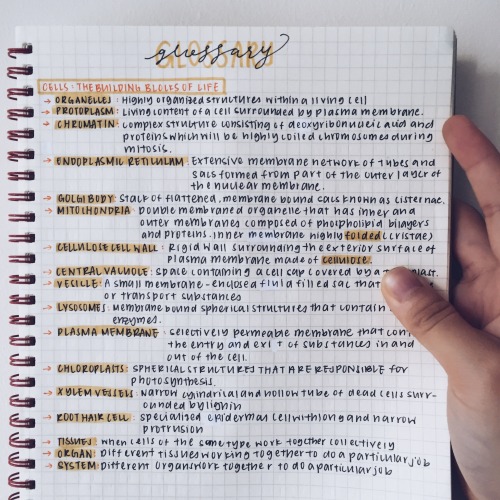 GLOSSARY
glossary
CELLS: THE BUILDING BLOCKS OF LIFE
→ ORGANELLES: Highly organized structures within a living cell
→ PROTOPLASM: Living content of a cell surrounded by plasma membrane.
→ CHROMATIN: complex structure consisting of deoxyribonucleic acid and
proteins which will be highly coiled chromosomes during
mitosis.
→ ENDOPLASMIC RETICULAM: Extensive membrane network of tubes and
sacs formed from part of the outer layer of
the nuclear membrane.
→ GOLGI BODY: Stack of flattened, membrane bound sacs known as cisternae.
→ MITOCHONDRIA: Double membraned organelle that has inner and
outer membranes composed of phospholipid bilayers
and proteins. inner membrane highly folded (cristae)
→ CELLULOSE CELL WALL: Rigid wall surrounding the exterior surface of
plasma membrane made of cellulose.
→ CENTRAL VACUOLE: space containing a cell sap covered by a
→ VESICLE: A small membrane-enclosed fluid filled sac that
or transport substances
→ LYSOSOMES: membrane bound spherical structures that contain
enzymes.
→ PLASMA MEMBRANE: selectively permeable membrane that
the entry and exit of substances in and
out of the cell.
→ CHLOROPLASTS: SPHERICAL STRUCTURES THAT ARE RESPONSIBLE FOR
photosynthesis.
→ XYLEM VESSELS: narrow cylindrical and hollow tube of dead cells surr-
ounded by lignin
→ ROOT HAIR CELL: specialized epidermal cell with long and narrow
protrusion
→ TISSUES: when cells of the same type work together collectively
→ ORGAN: Different tissues working together to do a particular job
→ SYSTEM: Different organs work together to do a particular job